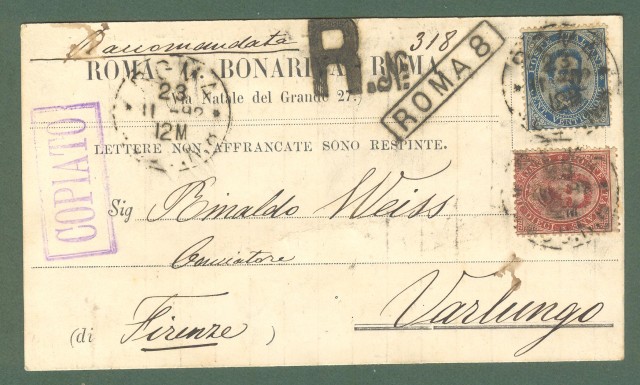 Raccomandata
R
No
318
ROMA BONARD ROMA
Via Natale del Grande 27.
ROMA 8
ROMA
23
11-92
12M
COPIATO
LETTERE NON AFFRANCATE SONO RESPINTE.
Sig Rinaldo Weiss
Conciatore
Varlungo
(di Firenze)